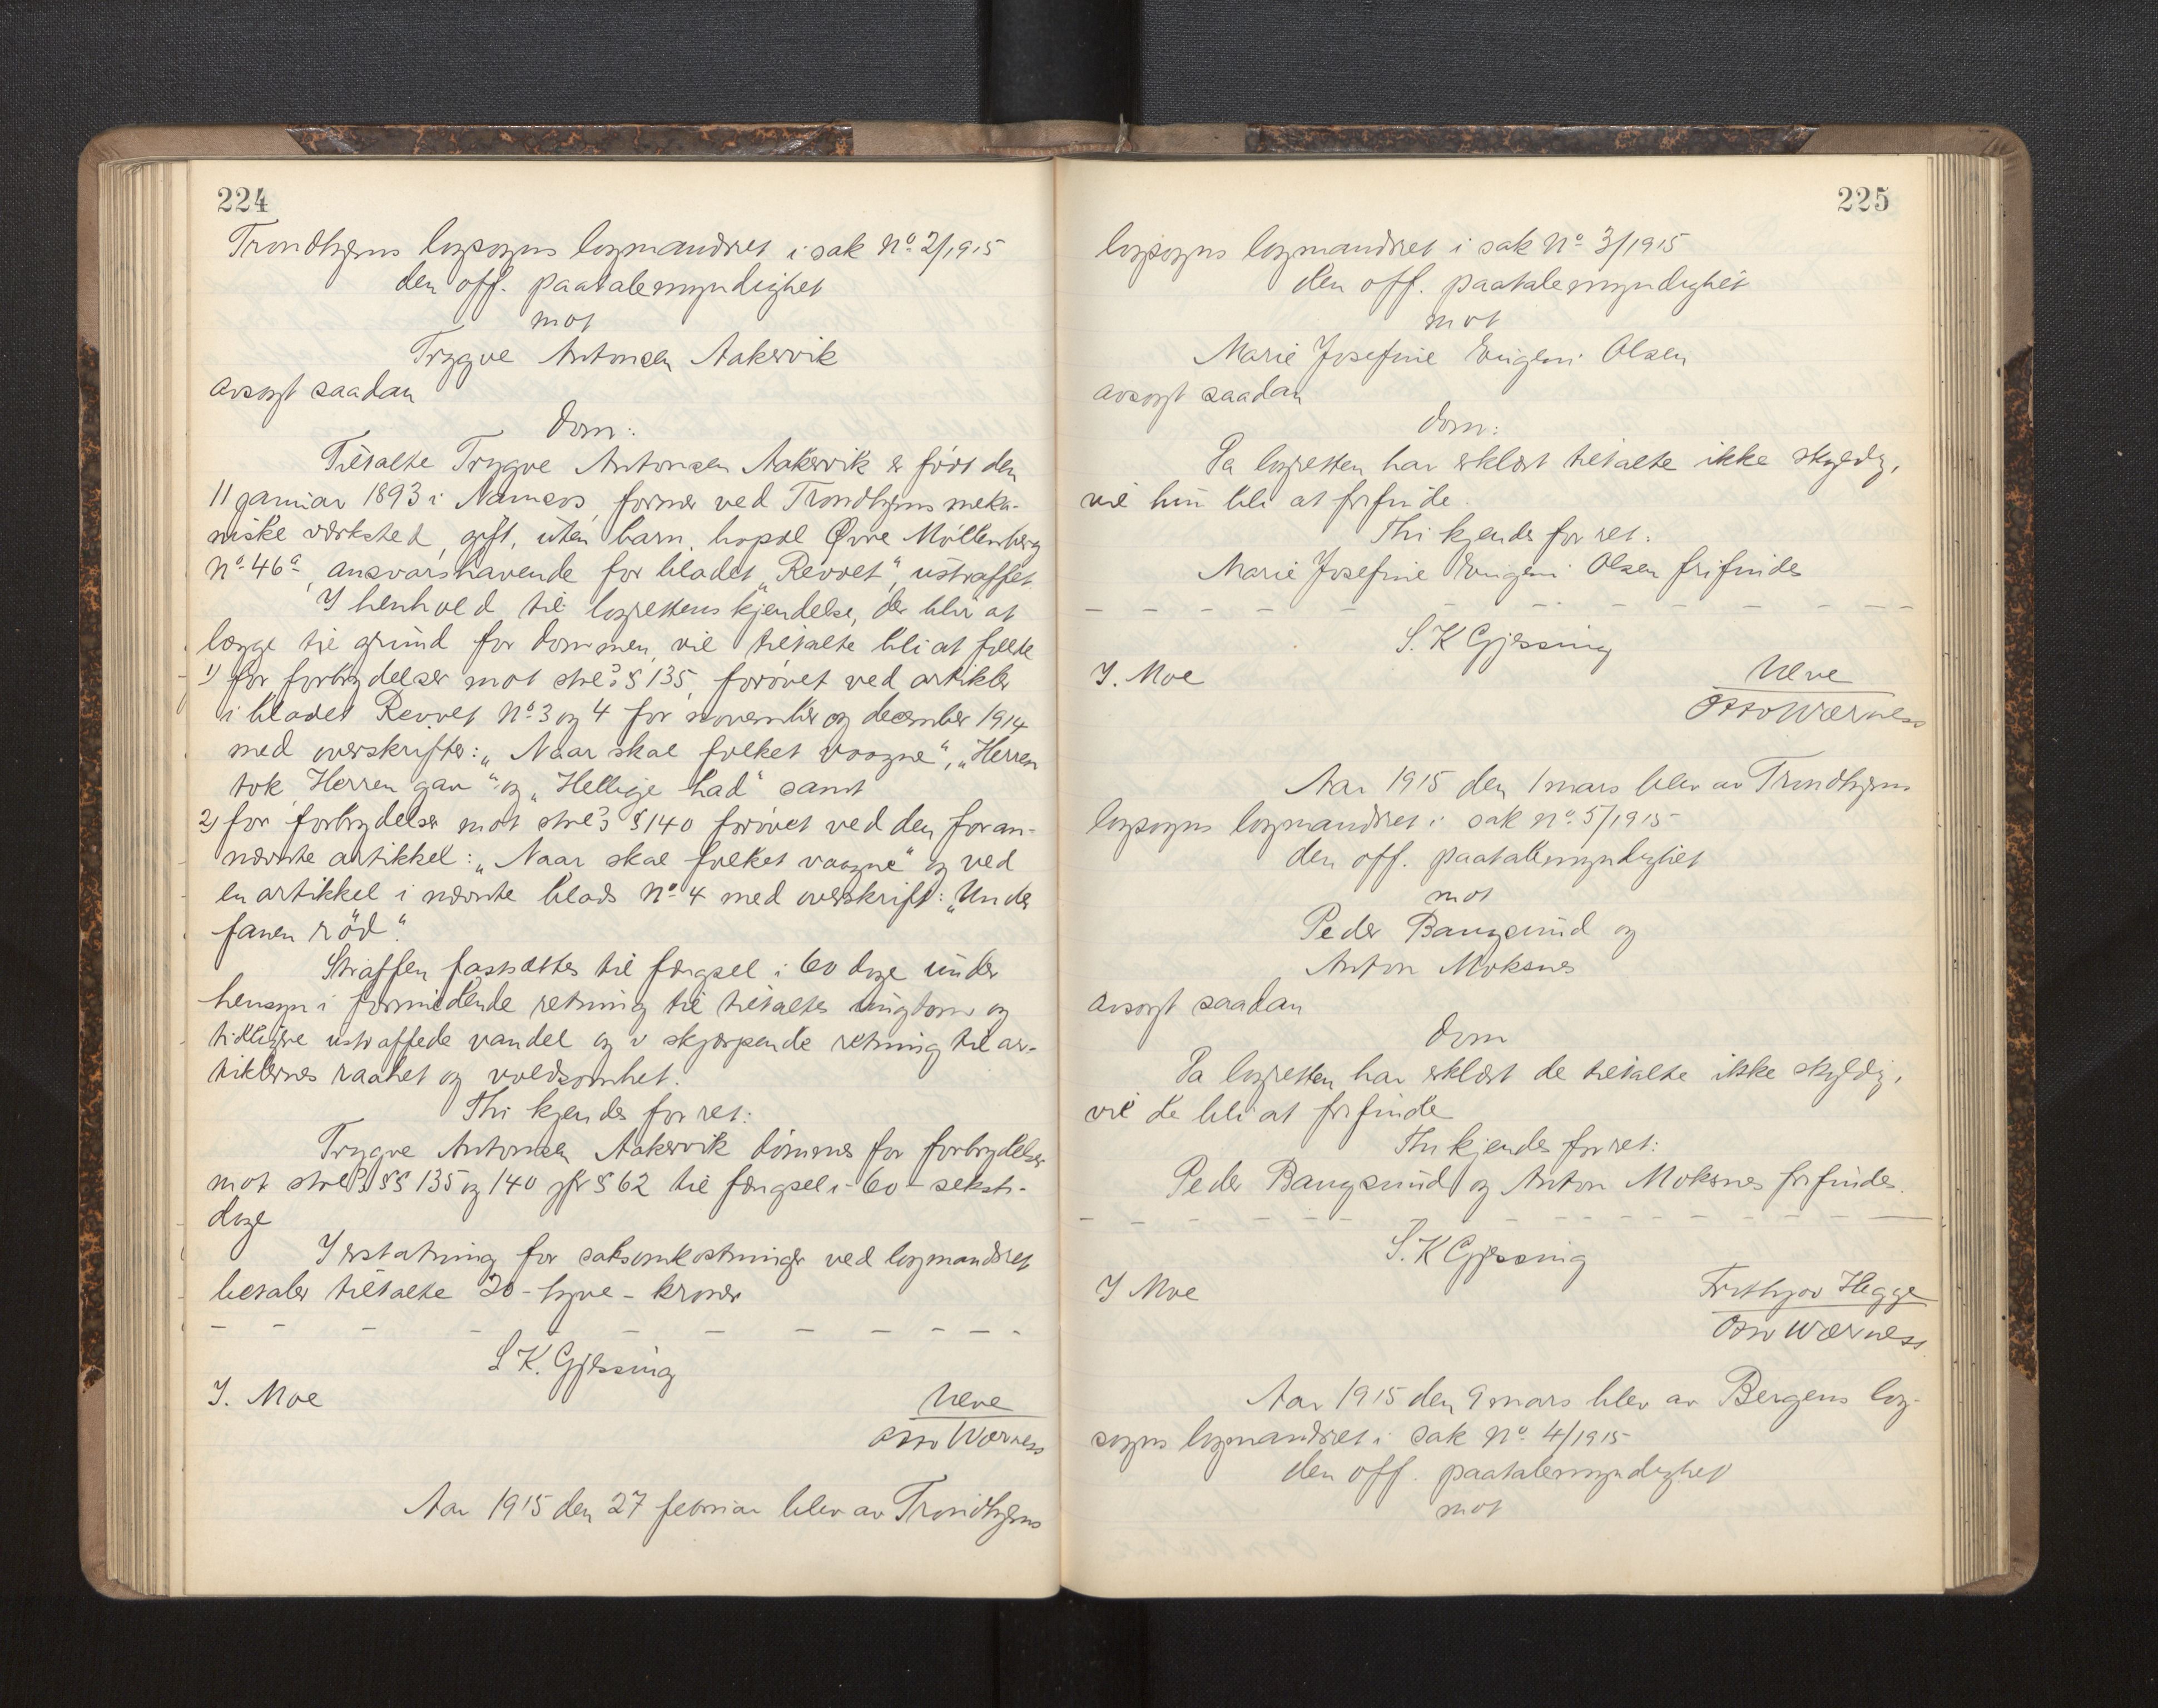 224
Trondhjems lagsogns lagmandsret i sak No 2/1915
den off. paatalemyndighet
mot
Trygve Antonsen Aakervik
avsagt saadan
dom:
Tiltalte Trygve Antonsen Aakervik er født den
11 januar 1893 i Namsos, former ved Trondhjems meka-
niske værksted, gift, uten barn, bopæl Øvre Møllenberg
No 46a, ansvarshavende for bladet „Revolt“, ustraffet.
I henhold til lagrettens kjendelse, der blir at
lægge til grund for dommen, vil tiltalte bli at fælde
1) for forbrydelser mot strl's § 135, forøvet ved artikler
i bladet Revolt No 3 og 4 for november og december 1914
med overskrifter: „Naar skal folket vaagne“, „Herren
tok Herren gav“ og „Hellige had“ samt
2) for forbrydelser mot strl's § 140 forøvet ved den foran-
nævnte artikkel: „Naar skal folket vaagne“ og ved
en artikkel i nævnte blads No 4 med overskrift: „Under
fanen rød“.
Straffen fastsættes til fængsel i 60 dage under
hensyn i formildende retning til tiltaltes ungdom og
tidligere ustraffede vandel og i skjærpende retning til ar-
tiklernes raahet og voldsomhet.
Thi kjendes for ret:
Trygve Antonsen Aakervik dømmes for forbrydelser
mot strl's §§ 135 og 140 jfr § 62 til fængsel i 60 - seksti -
dage
I erstatning for saksomkostninger ved lagmandsret
betaler tiltalte 20 - tyve - kroner
S K. Gjessing
I. Moe
Ulve
Otto Wærness
Aar 1915 den 27 februar blev av Trondhjems
225
lagsogns lagmandsret i sak No 3/1915
den off. paatalemyndighet
mot
Marie Josefine Eugeni Olsen
avsagt saadan
dom:
Da lagretten har erklært tiltalte ikke skyldig,
vil hun bli at frifinde.
Thi kjendes for ret:
Marie Josefine Eugeni Olsen frifindes
S. K Gjessing
I. Moe
Ulve
Otto Wærness
Aar 1915 den 1 mars blev av Trondhjems
lagsogns lagmandsret i sak No 5/1915
den off. paatalemyndighet
mot
Peder Bangsund og
Anton Moksnes
avsagt saadan
dom
Da lagretten har erklært de tiltalte ikke skyldig,
vil de bli at frifinde
Thi kjendes for ret:
Peder Bangsund og Anton Moksnes frifindes.
S. K Gjessing
I Moe
Frithjov Hegge
Otto Wærness
Aar 1915 den 9 mars blev av Bergens lag-
sogns lagmandsret i sak No 4/1915
den off. paatalemyndighet
mot